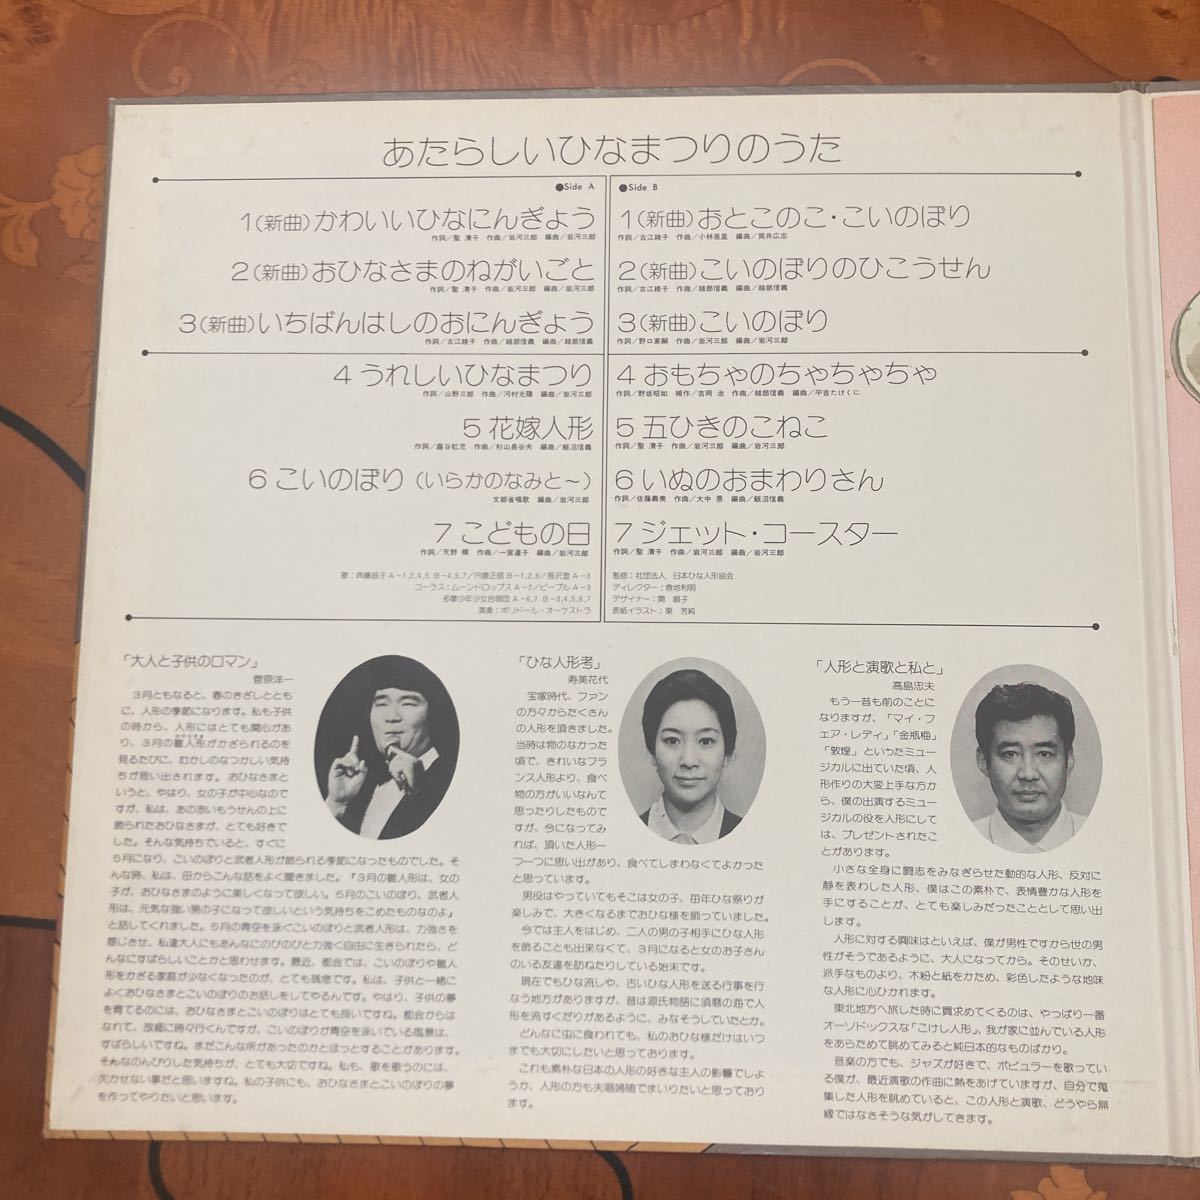 あたらしいひなまつりのうた
●Side A
1(新曲)かわいいひなにんぎょう
作詞／聖 清子 作曲／岩河三郎 編曲／岩河三郎
2(新曲)おひなさまのねがいごと
作詞／聖 清子 作曲／岩河三郎 編曲／岩河三郎
3(新曲)いちばんはしのおにんぎょう
作詞／古江綾子 作曲／越部信義 編曲／越部信義
4 うれしいひなまつり
作詞／山野三郎 作曲／河村光陽 編曲／岩河三郎
5 花嫁人形
作詞／蕗谷虹児 作曲／杉山長谷夫 編曲／飯沼信義
6 こいのぼり(いらかのなみと〜)
文部省唱歌 編曲／岩河三郎
7 こどもの日
作詞／天野 蝶 作曲／一宮道子 編曲／岩河三郎
歌：斉藤昌子 A−1,2,4,5 B−4,5,7／宍倉正信 B−1,2,6／長沢登 A−3
コーラス：ムーンドロップス A−2／ピープル A−3
多摩少年少女合唱団 A−6,7 B−3,4,5,6,7
演奏：ポリドール・オーケストラ
●Side B
1(新曲)おとこのこ・こいのぼり
作詞／古江綾子 作曲／小林亜星 編曲／筒井広志
2(新曲)こいのぼりのひこうせん
作詞／古江綾子 作曲／越部信義 編曲／越部信義
3(新曲)こいのぼり
作詞／野口家嗣 作曲／岩河三郎 編曲／岩河三郎
4 おもちゃのちゃちゃちゃ
作詞／野坂昭如 補作／吉岡 治 作曲／越部信義 編曲／平吉たけくに
5 五ひきのこねこ
作詞／聖 清子 作曲／岩河三郎 編曲／岩河三郎
6 いぬのおまわりさん
作詞／佐藤義美 作曲／大中 恩 編曲／飯沼信義
7 ジェット・コースター
作詞／聖 清子 作曲／岩河三郎 編曲／岩河三郎
監修：社団法人 日本ひな人形協会
ディレクター：倉地利明
デザイナー：関 順子
表紙イラスト：東 芳純
「大人と子供のロマン」
菅原洋一
3月ともなると、春のきざしととも
に、人形の季節になります。私も子供
の時から、人形にはとても関心があ
り、3月の雛人形がかざられるのを
見るたびに、むかしのなつかしい気持
ちが思い出されます。おひなさまと
いうと、やはり、女の子が中心なので
すが、私は、あの赤いもうせんの上に
飾られたおひなさまが、とても好きで
した。そんな気持ちでいると、すぐに
5月になり、こいのぼりと武者人形が飾られる季節になったものでした。そ
んな時、私は、母からこんな話をよく聞きました。『3月の雛人形は、女の
子が、おひなさまのように美しくなって欲しい。5月のこいのぼり、武者人
形は、元気な強い男の子になって欲しいという気持ちをこめたものなのよ』
と話してくれました。5月の青空を泳ぐこいのぼりと武者人形は、力強さを
感じさせ、私達大人にもあんなにのびのびと力強く自由に生きられたら、ど
んなにすばらしいことかと思わせます。最近、都会では、こいのぼりや雛人
形をかざる家庭が少なくなったのが、とても残念です。私は、子供と一緒に
よくおひなさまとこいのぼりのお話しをしてやるんです。やはり、子供の夢
を育てるのには、おひなさまとこいのぼりはとても良いですね。都会からは
なれて、故郷に時々行くんですが、こいのぼりが青空を泳いでいる風景は、
すばらしいですね。まだこんな所があったのかとほっとすることがあります。
それなのんびりした気持ちが、とても大切ですね。私も、歌を歌うのには、
欠かせない事だと思いますね。私の子供にも、おひなさまとこいのぼりの夢
を作ってやりたいと思います。
「ひな人形考」
寿美花代
宝塚時代、ファン
の方々からたくさん
の人形を頂きました。
当時は物のなかった
頃で、きれいなフラ
ンス人形より、食べ
物の方がいいなんて
思ったりしたもので
すが、今になってみ
れば、頂いた人形一
つ一つに思い出があり、食べてしまわなくてよかった
と思っています。
男役はやっていてもそこは女の子、毎年ひな祭りが
楽しみで、大きくなるまでおひな様を飾っていました。
今では主人をはじめ、二人の男の子相手にひな人形
を飾ることも出来なくて、3月になると女のお子さん
のいる友達を訪ねたりしている始末です。
現在でもひな流しや、古いひな人形を送る行事を行
なう地方がありますが、昔は源氏物語に須磨の海で人
形を流すくだりがあるように、みなそうしていたとか。
どんなに虫に食われても、私のおひな様だけはいつ
までも大切にしたいと思っております。
これも素朴な日本の人形の好きな主人の影響でしょ
うか、人形の方も夫唱婦随でまいりたいと思っており
ます。
「人形と演歌と私と」
高島忠夫
もう一昔も前のことに
なりますが、「マイ・フ
ェア・レディ」「金瓶梅」
「敦煌」といったミュー
ジカルに出ていた頃、人
形作りの大変上手な方か
ら、僕の出演するミュー
ジカルの役を人形にして
は、プレゼントされたこ
とがあります。
小さな全身に闘志をみなぎらせた動的な人形、反対に
静を表わした人形、僕はこの素朴で、表情豊かな人形を
手にすることが、とても楽しみだったこととして思い出
します。
人形に対する興味はといえば、僕が男性ですからせの男
性がそうであるように、大人になってから。そのせいか、
派手なものより、木粉と紙をかため、彩色したような地味
な人形に心ひかれます。
東北地方へ旅した時に買求めてくるのは、やっぱり一番
オーソドックスな「こけし人形」、我が家に並んでいる人形
をあらためて眺めてみると純日本的なものばかり。
音楽の方でも、ジャズが好きで、ポピュラーを歌ってい
る僕が、最近演歌の作曲に熱をあげていますが、自分で蒐
集した人形を眺めていると、この人形と演歌、どうやら無
縁ではなさそうな気がしてきます。